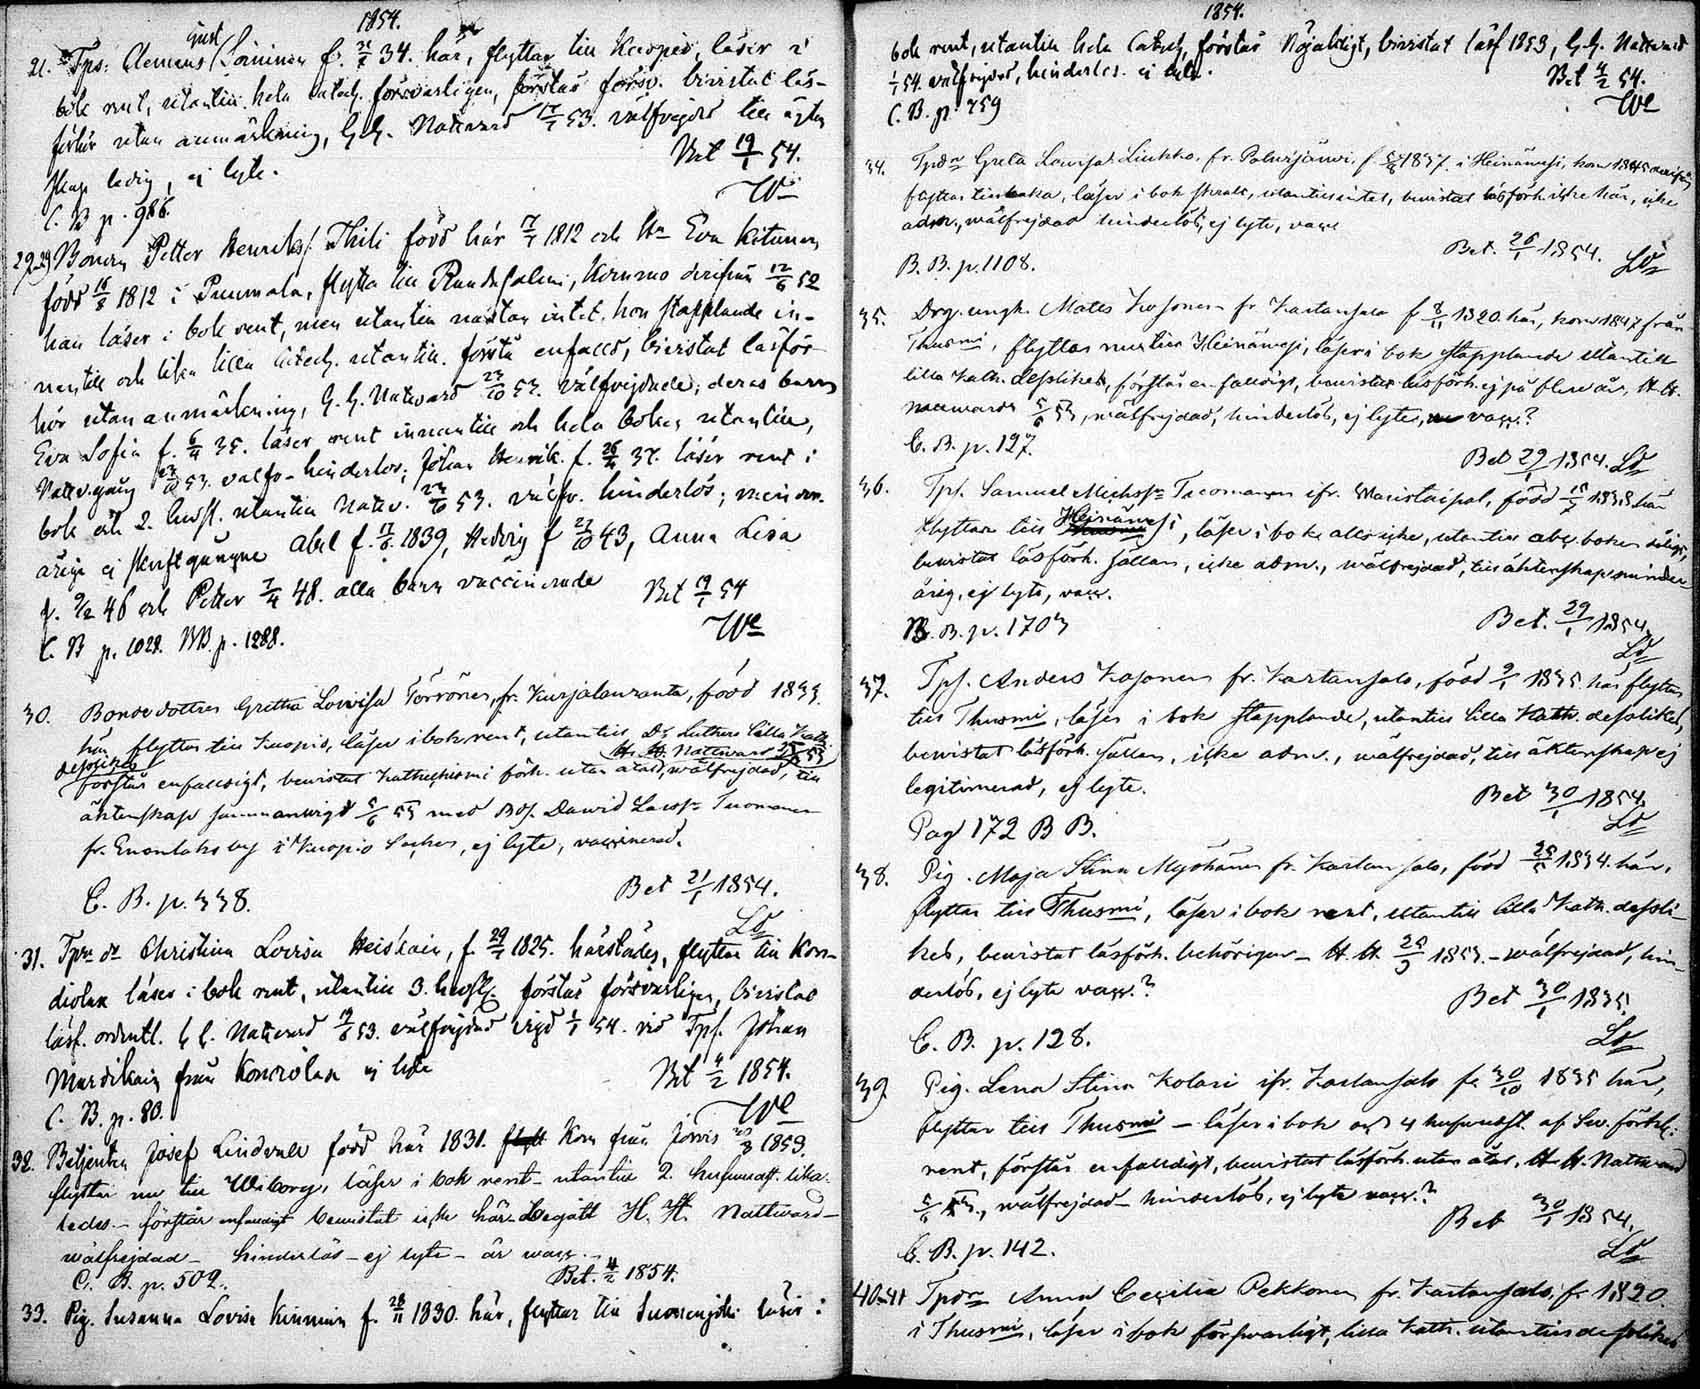 1854.
21. Tps: Clemens Gust Loininen f. 34. här, flyttar till Kuopio, läser i
bok rent, utantill hela catech. försvarligen, förstår försv. bivistat läs-
förhör utan anmärkning, H.H. Nattvard 53. välfrejdad till äkten
skap ledig, ej lyte.
Bet 19/1 54.
C. B p. 986.
We
Bonden Petter Henriks. Thili född här 17/7 1812 och Hn Eva Kitunen
född 16/8 1812 i Puumala, flytta till Randasalmi, komne derifrån 12/6 52
han läser i bok rent, men utantill nästan intet. hon stapplande in-
nantill och lika lilla Catech. utantill. förstå enfaldt, bivistat läsför-
hör utan anmärkning, H.H. Nattvard 23/10 53. välfrejdade; deras barn
Eva Sofia f. 6/4 35. läser rent innantill och hela boken utantill,
Nattv.gång 23/10 53. välfr- hinderlös; Johan Henrik f. 26/4 37. läser rent i
bok och 2. hufst. utantill Nattv. 23/10 53. välfr. hinderlös; minder-
åriga ej skriftgångne Abel f. 1839, Hedvig f 27/10 43, Anna Lisa
f. 9/2 46 och Petter 7/4 48. alla barn vaccinerade
Bet 19/1 54
C. B p. 1028. BB. p. 1288.
We
30. Bondedottren Gretha Lowisa Törrönen, fr. Kurjalanranta, född 1833
här flyttar till Kuopio, läser i bok rent, utantill Dr Luthers Lilla Kath.
dessliket H. H. Nattward 53
förstår enfaldigt, bewistat Kathechismi förh. utan atad, wälfrejdad, till
äktenskap sammanwigd 5/6 53 med Bds. Dawid Larss. Tuomainen
fr. Enonlaks by i Kuopio Socken, ej lyte, vaccinerad.
C. B. p. 338.
Bet 21/1 1854.
31. Tpn dr Christina Lovisa Heiskain, f. 29/7 1825. härstädes, flyttar till Kon-
diolax läser i bok rent, utantill 3. hufst. förstår försvarligen, bivistat
läsf. ordentl. H H. Nattvard 19/6 53. välfrejdad vigd 1/1 54. vid Tps. Johan
Mustikain från Kontiolax ej lyte
Bet 4/2 1854.
C. B. p. 80.
We
32. Betjenten Josef Lindvall född här 1831. Kom från Jorois 1853.
flyttar nu till Wiborg, läser i bok rent - utantill 2. hufvudst. lika-
ledes - förstår enfaldigt bewistat icke här. Begått H. H. Nattvard -
wälfrejdad - hinderlös - ej lyte - är wacc. -
C. B. p. 502.
Bet. 4/2 1854.
33. Pig. Susanna Lovisa Kinnunen f. 28/11 1830. här, flyttar till Suonenjoki läser i
1854.
bok rent, utantill hela Catech, förstår Nöjaktigt, bivistat läsf 1853, H.H. Nattvard
1/1 54 välfrejdad, hinderlös. ej lyte.
Bet 4/2 54.
C. B. p. 759
We
34. Tpdr Greta Lowisa Liukko, fr. Polwijärwi, f. 1837 i Heinäwesi, kom 1845 derifrån
flyttar tillbaka, läser i bok skralt, utantill intet, bewistat läsförh. icke här, icke
adm., wälfrejdad hinderlös, ej lyte, vacc
Bet. 26/1 1854.
B. B. p. 1108.
35. Drg. ungk. Mats Kosonen fr Kartansalo f 8/11 1820. här, kom 1847 från
Thusmi, flyttar nu till Heinäwesi, läser i bok stapplande utantill
lilla kath. dessliket, förstår enfaldigt, bewistar läsförh. ej på flere år, H. H.
nattward 5/6 53, wälfrejdad, hinderlös, ej lyte, vacc.?
C. B. p. 127.
Bet 29/1 1854.
36. Tps. Samuel Michss. Tuomainen ifr. Maristaipal, född 1838 här
flyttar till Heinäwesi, läser i bok alls icke, utantill abc boken dåligt,
bewistat läsförh. sällan, icke adm., wälfrejdad, till äktenskap minder-
årig, ej lyte, vacc.
Bet. 29/1 1854.
B. B. p. 1703
37. Tps. Anders Kosonen fr. Kartansalo, född 9/1 1835 här flyttar
till Thusmi, läser i bok stapplande, utantill lilla Kath. dessliket,
bewistat läsförh. sällan, icke adm., wälfrejdad, till äktenskap ej
legitimerad, ej lyte.
Bet 30/1 1854.
Pag 172 B B.
38. Pig. Maja Stina Myöhänen fr. Kartansalo, född 1834. här,
flyttar till Thusmi, läser i bok rent, utantill lilla Kath. dessli-
ket, bewistat läsförh. behörigen - H. H. 1853. - wälfrejdad, hin-
derlös, ej lyte vacc.?
Bet 30/1 1835.
C. B. p. 128.
39 Pig. Lena Stina Kolari ifr. Kartansalo f. 30/10 1835 här,
flyttar till Thusmi - läser i bok och 4 hufvudst. af Sw. förkl:
rent, förstår enfaldigt, bewistat läsförh. utan atad, H. H. Nattward
5/6 53., wälfrejdad - hinderlös, ej lyte vacc.?
Bet 30/1 1854.
C. B. p. 142.
40-41 Tpdr Anna Cecilia Pekkonen fr. Kartansalo, fr 1820.
i Thusmi, läser i bok förswarligt, lilla kath. utantill dessliket